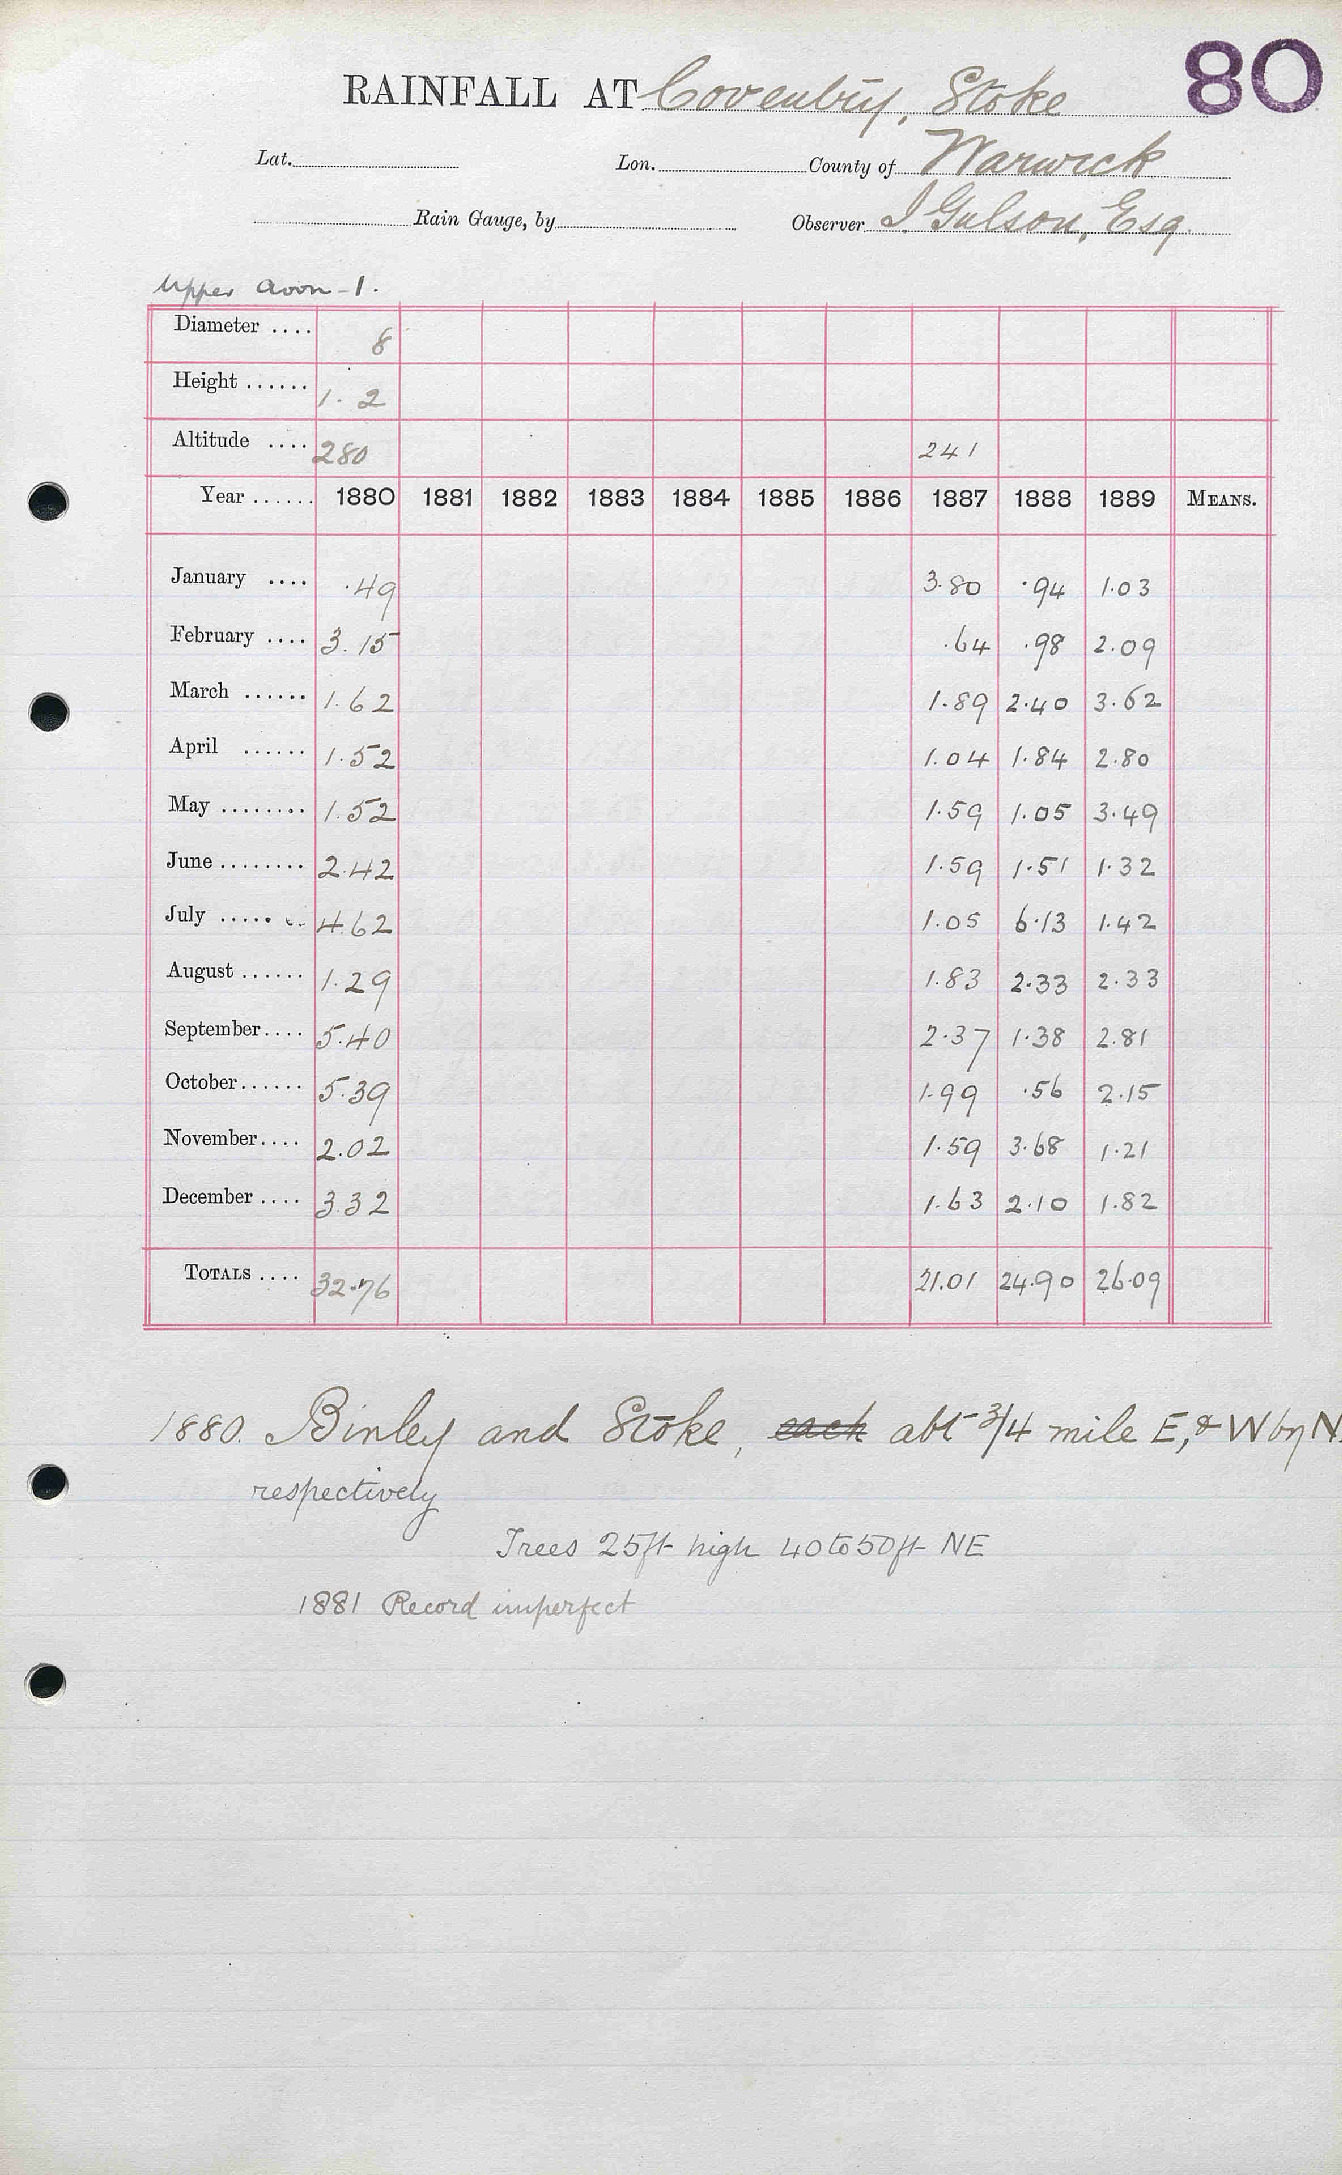 80
RAINFALL AT Coventry, Stoke
Lat. Lon. County of Warwick
Rain Gauge, by Observer I Gulson, Esq.
Upper Avon - 1.
Diameter .... 8
Height ...... 1. 2
Altitude .... 280 241
Year ...... 1880 1881 1882 1883 1884 1885 1886 1887 1888 1889 MEANS.
January .... .49 3.80 .94 1.03
February .... 3.15 .64 .98 2.09
March ...... 1.62 1.89 2.40 3.62
April ...... 1.52 1.04 1.84 2.80
May ........ 1.52 1.59 1.05 3.49
June ........ 2.42 1.59 1.51 1.32
July ........ 4.62 1.05 6.13 1.42
August ...... 1.29 1.83 2.33 2.33
September.... 5.40 2.37 1.38 2.81
October...... 5.39 1.99 .56 2.15
November.... 2.02 1.59 3.68 1.21
December .... 3.32 1.63 2.10 1.82
TOTALS .... 32.76 21.01 24.90 26.09
1880. Binley and Stoke, each abt 3/4 mile E, & W by N.
respectively
Trees 25ft high 40 to 50 ft NE
1881 Record imperfect